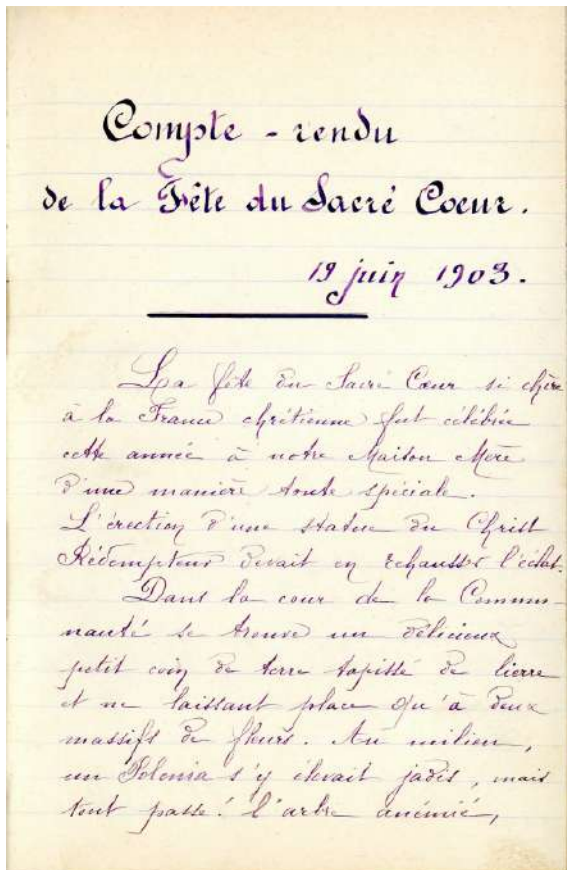 Compte - rendu
de la Fête du Sacré Coeur.
19 juin 1903.
La fête du Sacré Cœur si chère
à la France chrétienne fut célébrée
cette année à notre Maison Mère
d'une manière toute spéciale.
L'érection d'une statue du Christ
Rédempteur devait en rehausser l'éclat.
Dans la cour de la Commu-
nauté se trouve un délicieux
petit coin de terre tapissé de lierre
et ne laissant place qu'à deux
massifs de fleurs. Au milieu,
un Polonia s'y élevait jadis, mais
tout passe! l'arbre anémié,